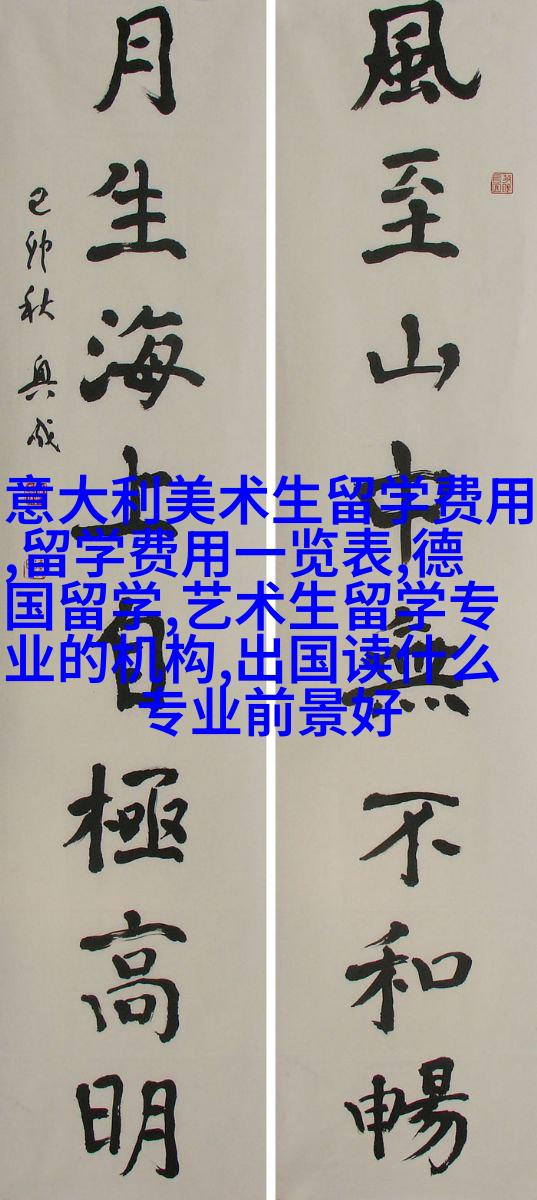 風至山中無不和暢
月生海上自極高明
己卯秋
意大利美术生留学费用
,留学费用一览表,德
国留学,艺术生留学专
业的机构,出国读什么
专业前景好